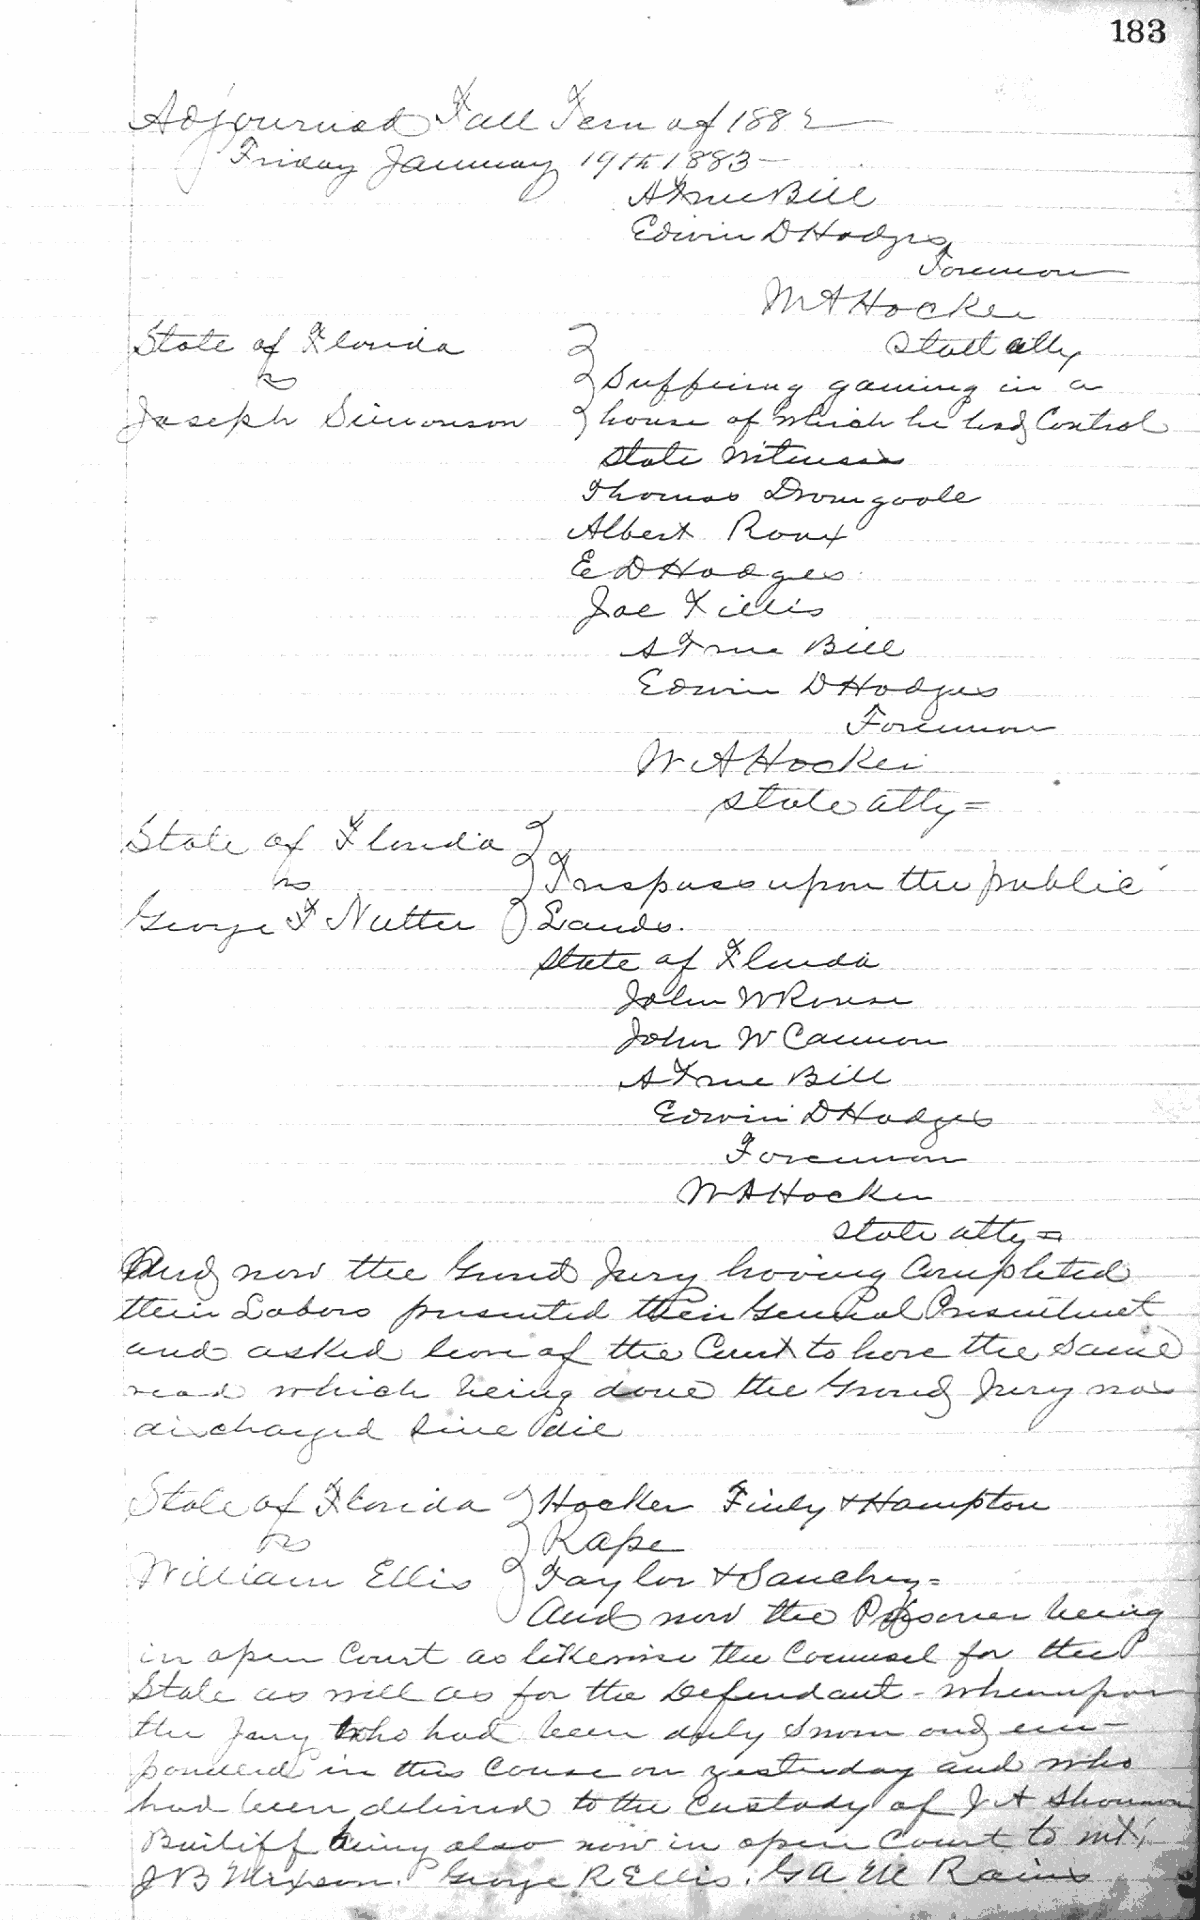 183
Adjourned Fall Term of 1882
Friday January 19th 1883 —
A True Bill
Edwin D Hodges
Foreman
W A Hocker
State atty
State of Florida
vs
Joseph Simonson
Suffering gaming in a
house of which he had Control
State Witnesses
Thomas Dromgoole
Albert Roux
E D Hodges
Joe Tillis
A True Bill
Edwin D Hodges
Foreman
W A Hocker
State atty =
State of Florida
vs
George F Nutter
Trespass upon the public
Lands.
State of Florida
John W Rouse
John W Cannon
A True Bill
Edwin D Hodges
Foreman
W A Hocker
State atty =
And now the Grand Jury having Completed
their Labors presented their General Presentment
and asked leave of the Court to have the same
read which being done the Grand Jury was
discharged Sine die
State of Florida
vs
William Ellis
Hocker Finly & Hampton
Rape
Taylor & Sanchez =
And now the Prisoner being
in open Court as likewise the Counsel for the
State as well as for the Defendant - Whereupon
the Jury who had been duly sworn and em-
panneled in this Cause on yesterday and who
had been delivered to the Custody of J A Shannon
Bailiff being also now in open Court to wit;
J B Mixson. George R Ellis. G A Mc Rains